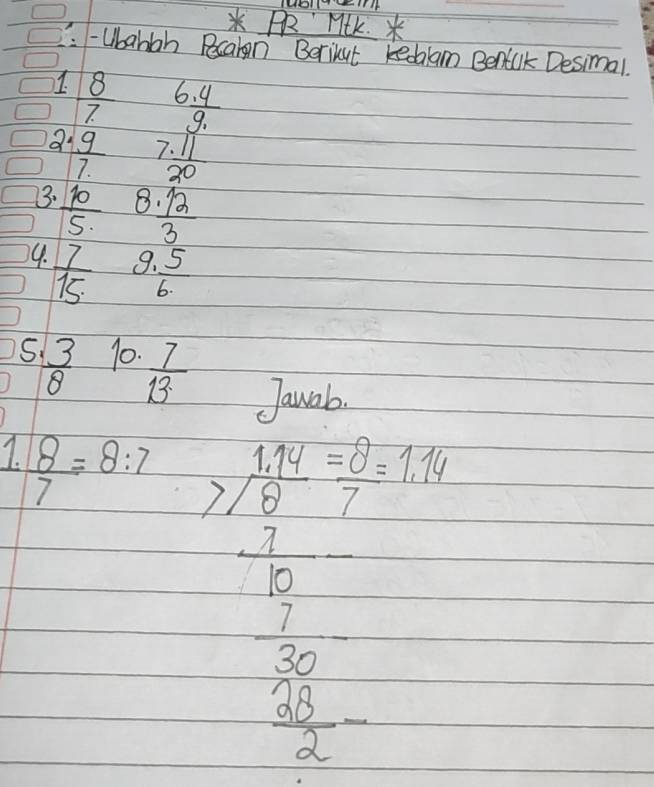 * PR Mtk. *
-Ubahlah Pecahan Berikut kedalam Bentuk Desimal.
1. 8/7. 6. 4/9.
2. 9/7. 7. 11/20
3. 10/5. 8. 12/3
4. 7/15. 9. 5/6.
5. 3/8 10. 7/13
Jawab.
1. 8/7 = 8:7 1.14 = 8/7 = 1.14
7/8
7 -
10
7 -
30
28 -
2